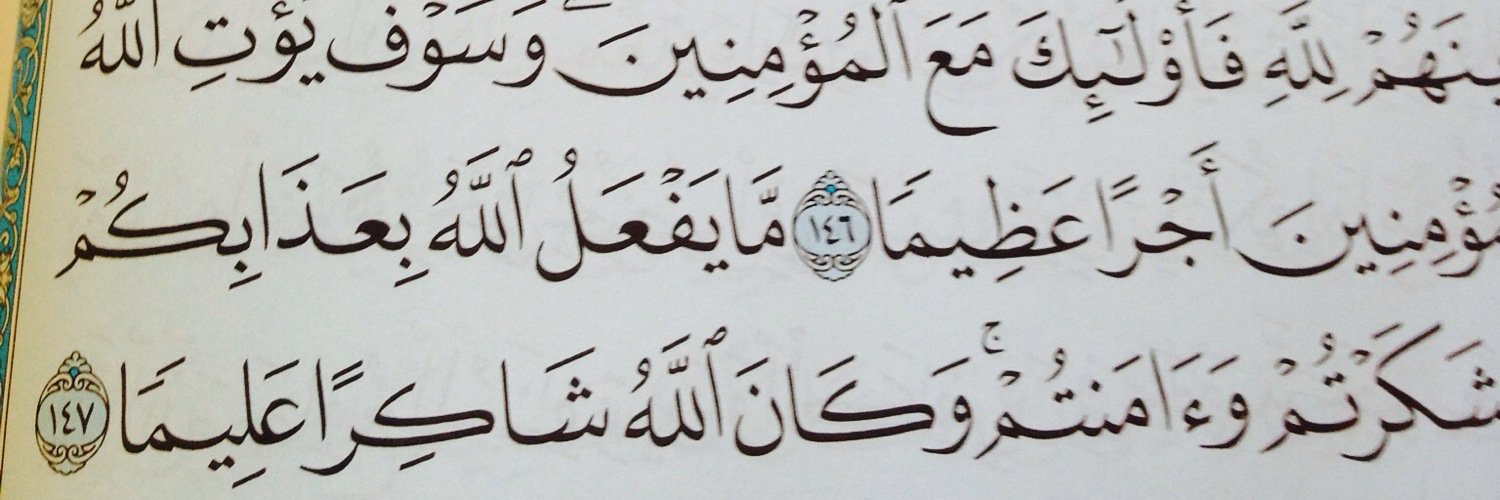 دِينَهُمْ لِلَّهِ فَأُو۟لَٰٓئِكَ مَعَ ٱلْمُؤْمِنِينَ ۖ وَسَوْفَ يُؤْتِ ٱللَّهُ
ٱلْمُؤْمِنِينَ أَجْرًا عَظِيمًا ١٤٦ مَّا يَفْعَلُ ٱللَّهُ بِعَذَابِكُمْ
شَكَرْتُمْ وَءَامَنتُمْ ۚ وَكَانَ ٱللَّهُ شَاكِرًا عَلِيمًا ١٤٧